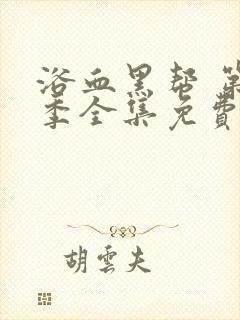 浴血黑帮 第
季全集免费
胡雲夫